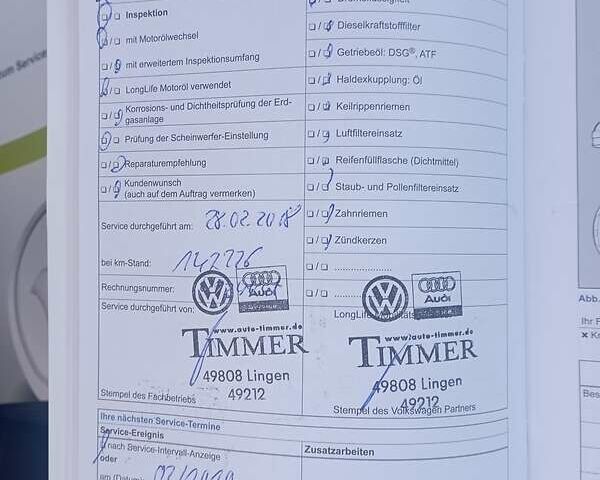 Inspektion
mit Motorölwechsel
mit erweitertem Inspektionsumfang
LongLife Motoröl verwendet
Korrosions- und Dichtheitsprüfung der Erd-
gasanlage
Prüfung der Scheinwerfer-Einstellung
Reparaturempfehlung
Kundenwunsch
(auch auf dem Auftrag vermerken)
Service durchgeführt am: 28.02.2018
bei km-Stand: 142226
Rechnungsnummer:
Service durchgeführt von:
Audi
www.auto-timmer.de
TIMMER
49808 Lingen
49212
Stempel des Fachbetriebs
Dieselkraftstofffilter
Getriebeöl: DSG®, ATF
Haldexkupplung: Öl
Keilrippenriemen
Luftfiltereinsatz
Reifenfüllflasche (Dichtmittel)
Staub- und Pollenfiltereinsatz
Zahnriemen
Zündkerzen
LongLife
Audi
www.auto-timmer.de
TIMMER
49808 Lingen
49212
Stempel des Volkswagen Partners
Ihre nächsten Service-Termine
Service-Ereignis
nach Service-Intervall-Anzeige
oder
am (Datum)
Zusatzarbeiten
um Service
Abb.
Ihr F
Bes